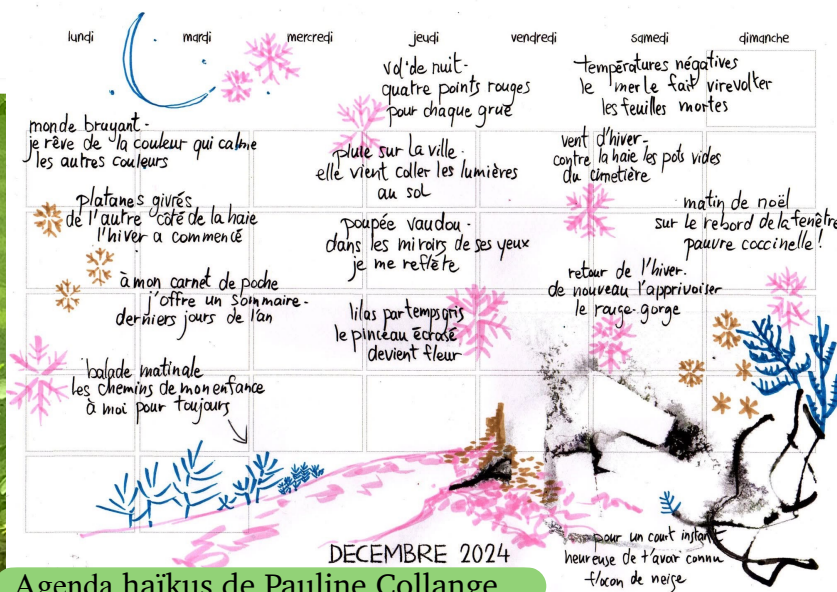 lundi mardi mercredi jeudi vendredi samedi dimanche
vol de nuit-
quatre points rouges
pour chaque grue
températures négatives
le merle fait virevolter
les feuilles mortes
monde bruyant-
je rêve de la couleur qui calme
les autres couleurs
pluie sur la ville-
elle vient coller les lumières
au sol
vent d'hiver-
contre la haie les pots vides
du cimetière
platanes givrés
de l'autre côté de la haie
l'hiver a commencé
poupée vaudou-
dans les miroirs de ses yeux
je me reflète
matin de noël
sur le rebord de la fenêtre
pauvre coccinelle!
à mon carnet de poche
j'offre un sommaire-
derniers jours de l'an
retour de l'hiver.
de nouveau l'apprivoiser
le rouge-gorge
lilas par temps gris
le pinceau écrasé
devient fleur
balade matinale
les chemins de mon enfance
à moi pour toujours
DECEMBRE 2024
pour un court instant
heureuse de t'avoir connu
flocon de neige
Agenda haïkus de Pauline Collange